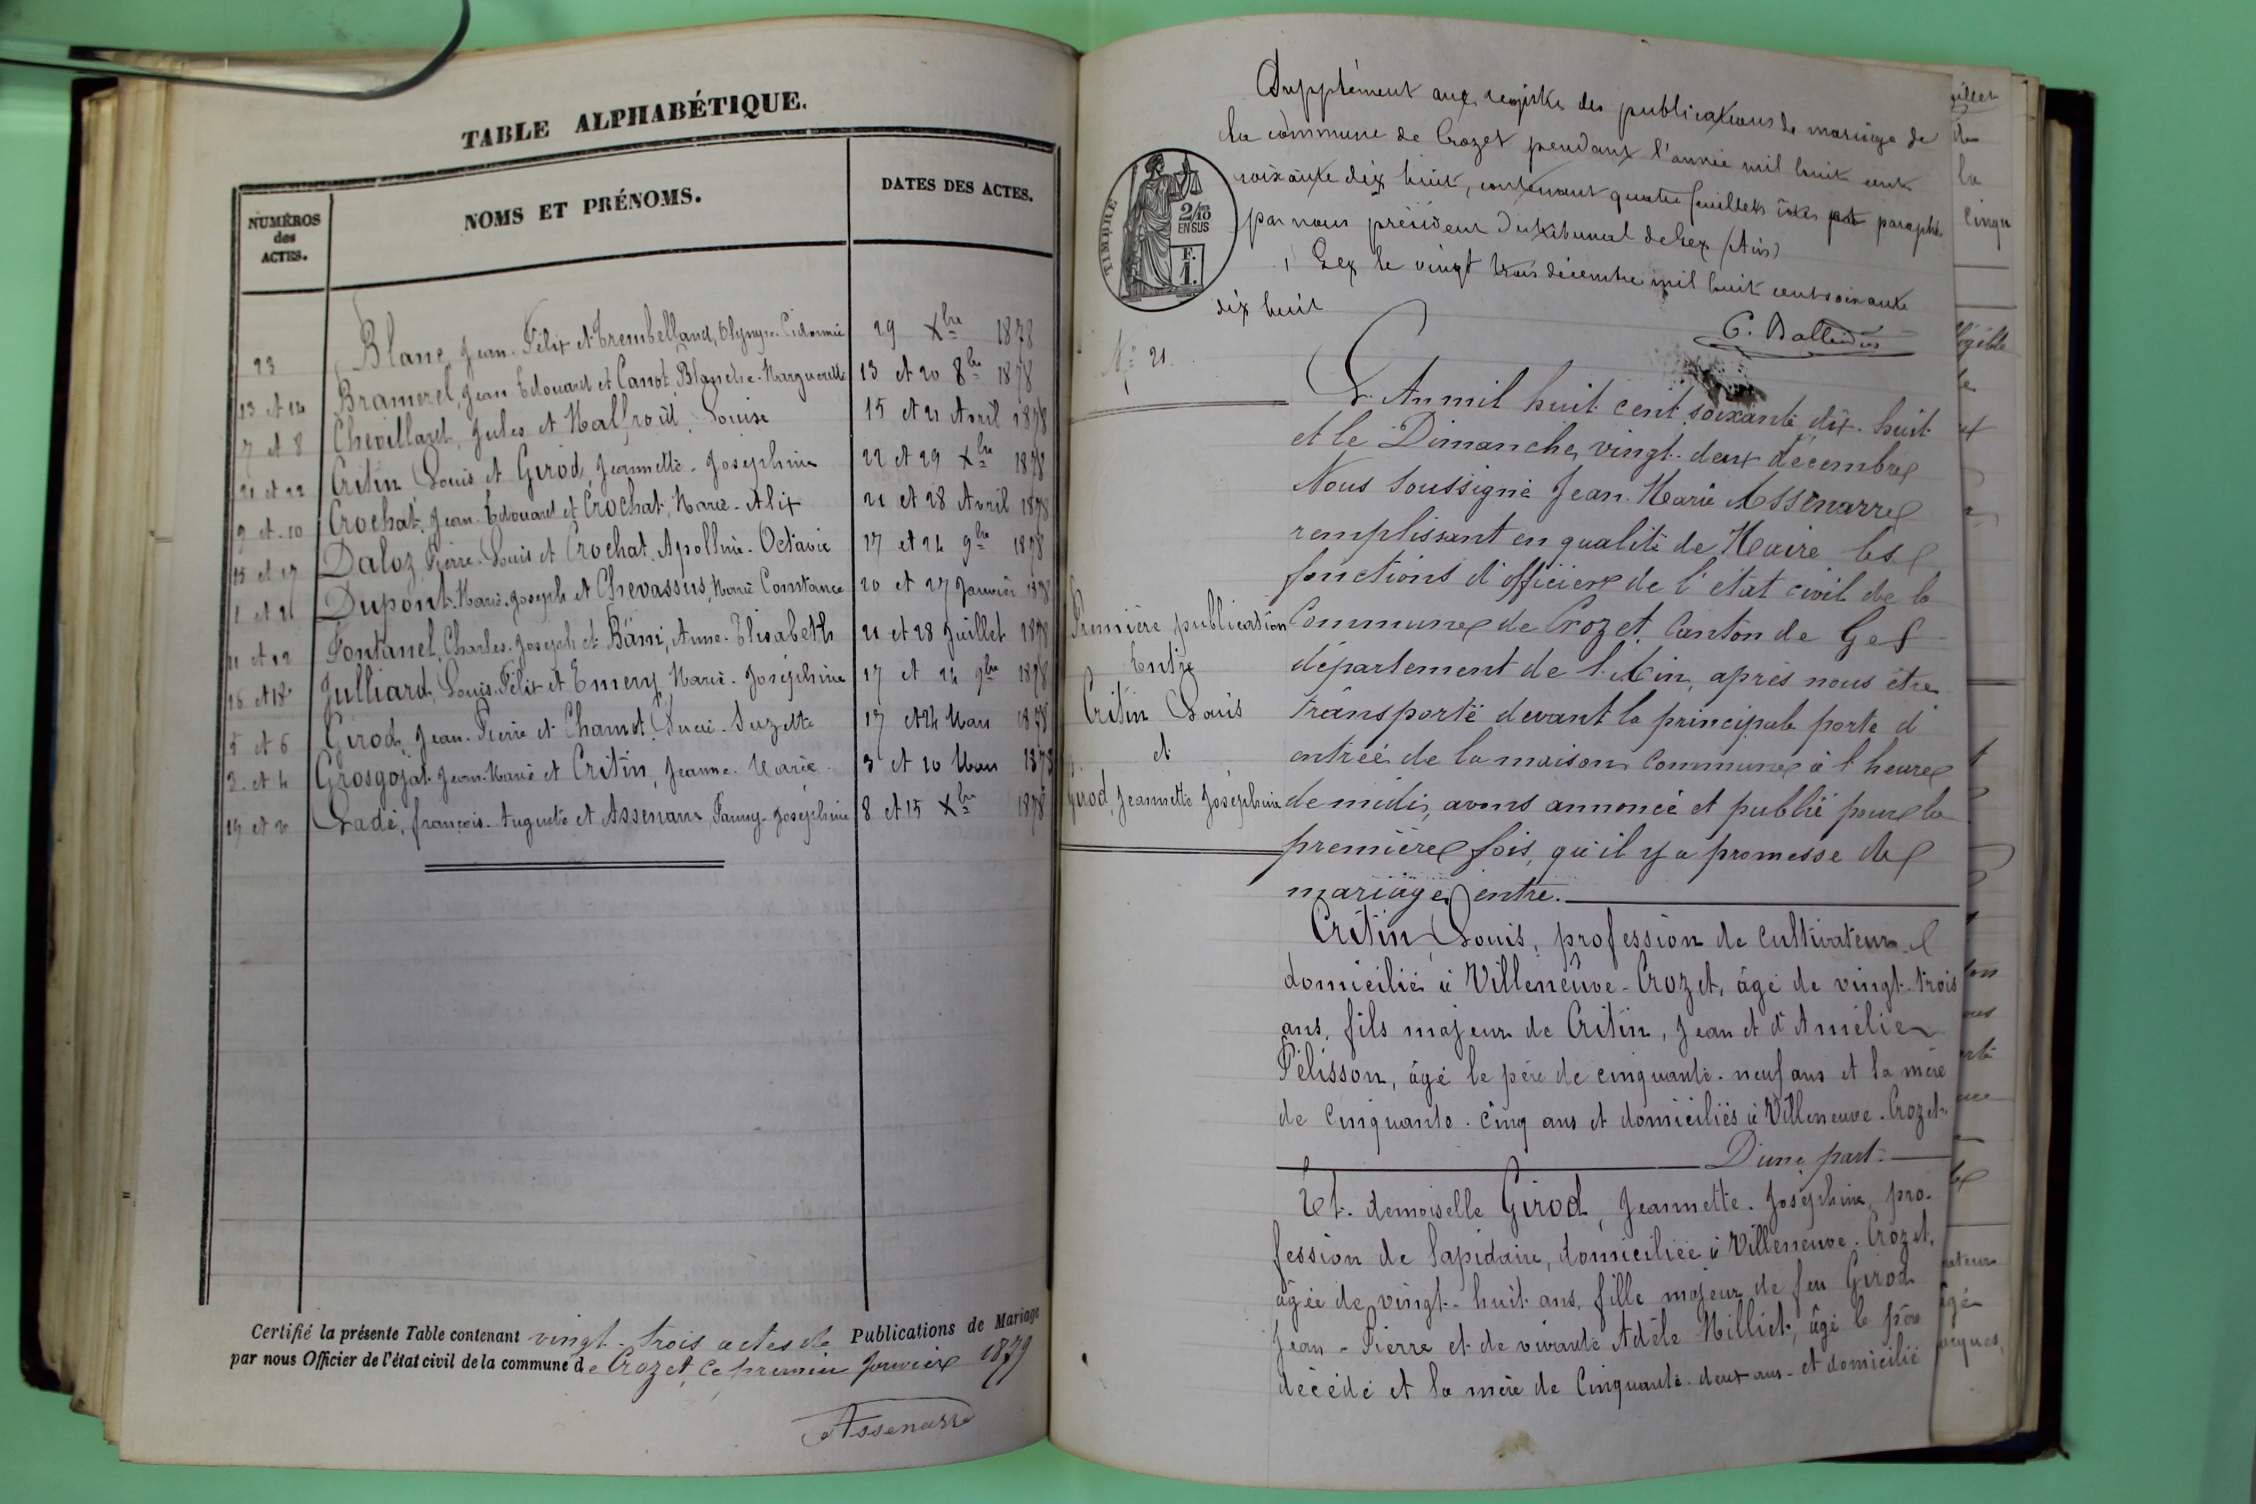 TABLE ALPHABÉTIQUE.
NUMÉROS des ACTES.
NOMS ET PRÉNOMS.
DATES DES ACTES.
23 Blanc, Jean-Félix et Trembelland, Olympe 29 Xbre 1878
13 et 14 Bramerel, Jean Edouard et Canot Blanche-Marguerite 13 et 20 8bre 1878
7 et 8 Chevillard, Jules et Malfroid, Louise 15 et 21 Avril 1878
21 et 22 Critin Louis et Girod, Jeannette-Joséphine 22 et 29 Xbre 1878
9 et 10 Crochat, Jean-Edouard et Crochat, Marie-Alix 21 et 28 Avril 1878
15 et 17 Daloz, Pierre-Louis et Crochat, Apolline-Octavie 17 et 24 9bre 1878
1 et 2 Dupont-Marie-Joseph et Chevassus, Marie Constance 20 et 27 Janvier 1878
11 et 12 Fontanel, Charles-Joseph et Bäni, Anne-Elisabeth 21 et 28 Juillet 1878
16 et 18 Julliard, Louis-Félix et Emery Marie-Joséphine 17 et 24 9bre 1878
5 et 6 Girod, Jean-Pierre et Chamot, Suzette 17 et 24 Mars 1878
3 et 4 Grosgojat-Jean-Marie et Critin, Jeanne-Marie 3 et 10 Mars 1878
19 et 20 Ladé, françois-Auguste et Assenarre, Fanny-Joséphine 8 et 15 Xbre 1878
Certifié la présente Table contenant vingt-trois actes de Publications de Mariage
par nous Officier de l'état civil de la commune de Crozet, ce premier Janvier 1879
Assenarre
Supplément aux registre des publications de mariage de
la commune de Crozet pendant l'année mil huit cent
soixante dix huit, contenant quatre feuillets cotés paraphés
par nous président du tribunal de Gex (Ain)
Gex le vingt trois décembre mil huit cent soixante
dix huit
TIMBRE
2/10 EN SUS
F. 1.
N° 21.
L'An mil huit cent soixante dix-huit
et le Dimanche, vingt-deux décembre
Nous soussigné Jean-Marie Assenarre
remplissant en qualité de Maire les
fonctions d'officier de l'état civil de la
Commune de Crozet, Canton de Gex
département de l'Ain, après nous être
transporté devant la principale porte d'
entrée de la maison commune à l'heure
de midi, avons annoncé et publié pour la
première fois, qu'il y a promesse de
mariage entre.
Première publication
Entre
Critin Louis
et
Girod, Jeannette Joséphine
Critin, Louis, profession de cultivateur
domicilié à Villeneuve-Crozet, âgé de vingt-trois
ans, fils majeur de Critin, Jean et d'Amélie
Pélisson, âgé le père de cinquante-neuf ans et la mère
de cinquante-cinq ans et domiciliés à Villeneuve-Crozet-
D'une part.
Et demoiselle Girod, Jeannette-Joséphine, pro-
fession de lapidaire, domiciliée à Villeneuve-Crozet,
âgée de vingt-huit ans, fille majeur de feu Girod
Jean-Pierre et de vivante Adèle Milliet, âgé le père
décédé et la mère de Cinquante-deux ans et domicilié